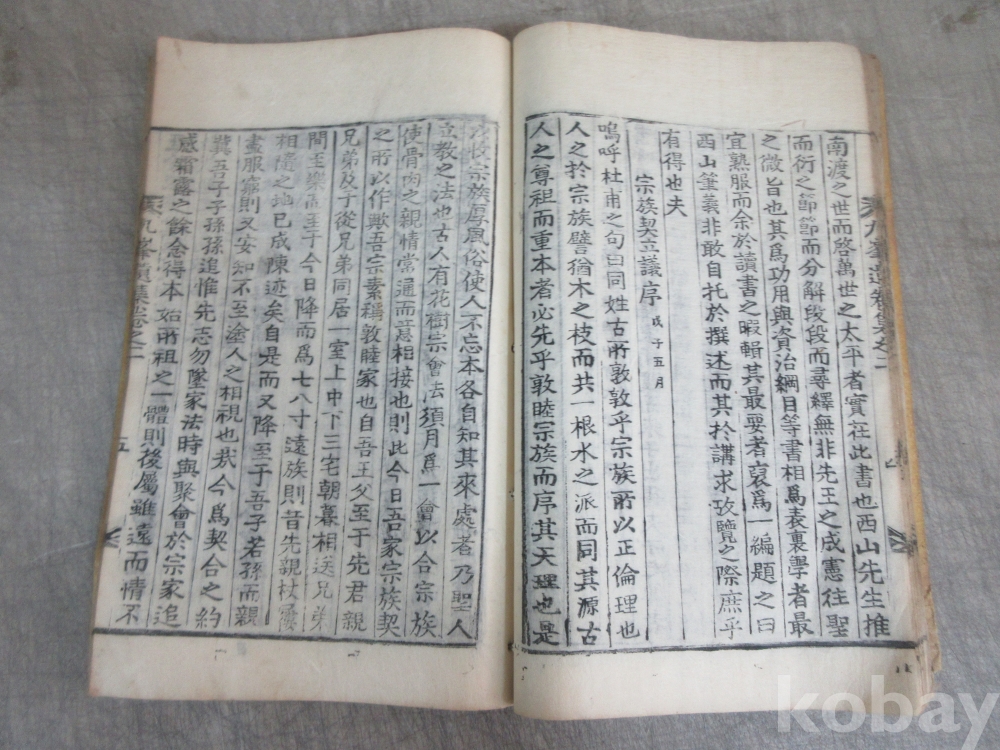 南渡之世而啓萬世之太平者實在此書也西山先生推
而衍之節節而分解段段而尋繹無非先王之成憲往聖
之微旨也其爲功用與資治綱目等書相爲表裏學者最
宜熟服而余於讀書之暇輯其最要者裒爲一編題之曰
西山箚義非敢自托於撰述而其於講求攷覽之際庶乎
有得也夫
宗族契立議序 戊子五月
嗚呼杜甫之句曰同姓古所敦敦乎宗族所以正倫理也
人之於宗族譬猶木之枝而共一根水之派而同其源古
人之尊祖而重本者必先乎敦睦宗族而序其天理也是
收宗族厚風俗使人不忘本各自知其來處者乃聖人
立教之法也古人有花樹宗會法須月爲一會以合宗族
使骨肉之親情常通而意相接也則此今日吾家宗族契
之所以作猷吾宗素稱敦睦家也自吾王父至于先君親
兄弟及子從兄弟同居一室上中下三宅朝暮相送兄弟
間至樂而至于今日降而爲七八寸遠族則昔先親杖屨
相隨之地已成陳迹矣自是而又降至于吾子若孫而親
盡服窮則又安知不至塗人之相視也哉今爲契合之約
冀吾子子孫孫追惟先志勿墜家法時與聚會於宗家追
感霜露之餘念得本始所祖之一體則後屬雖遠而情不
九峯遺集卷之二
九峯遺集卷之二
五
kobay